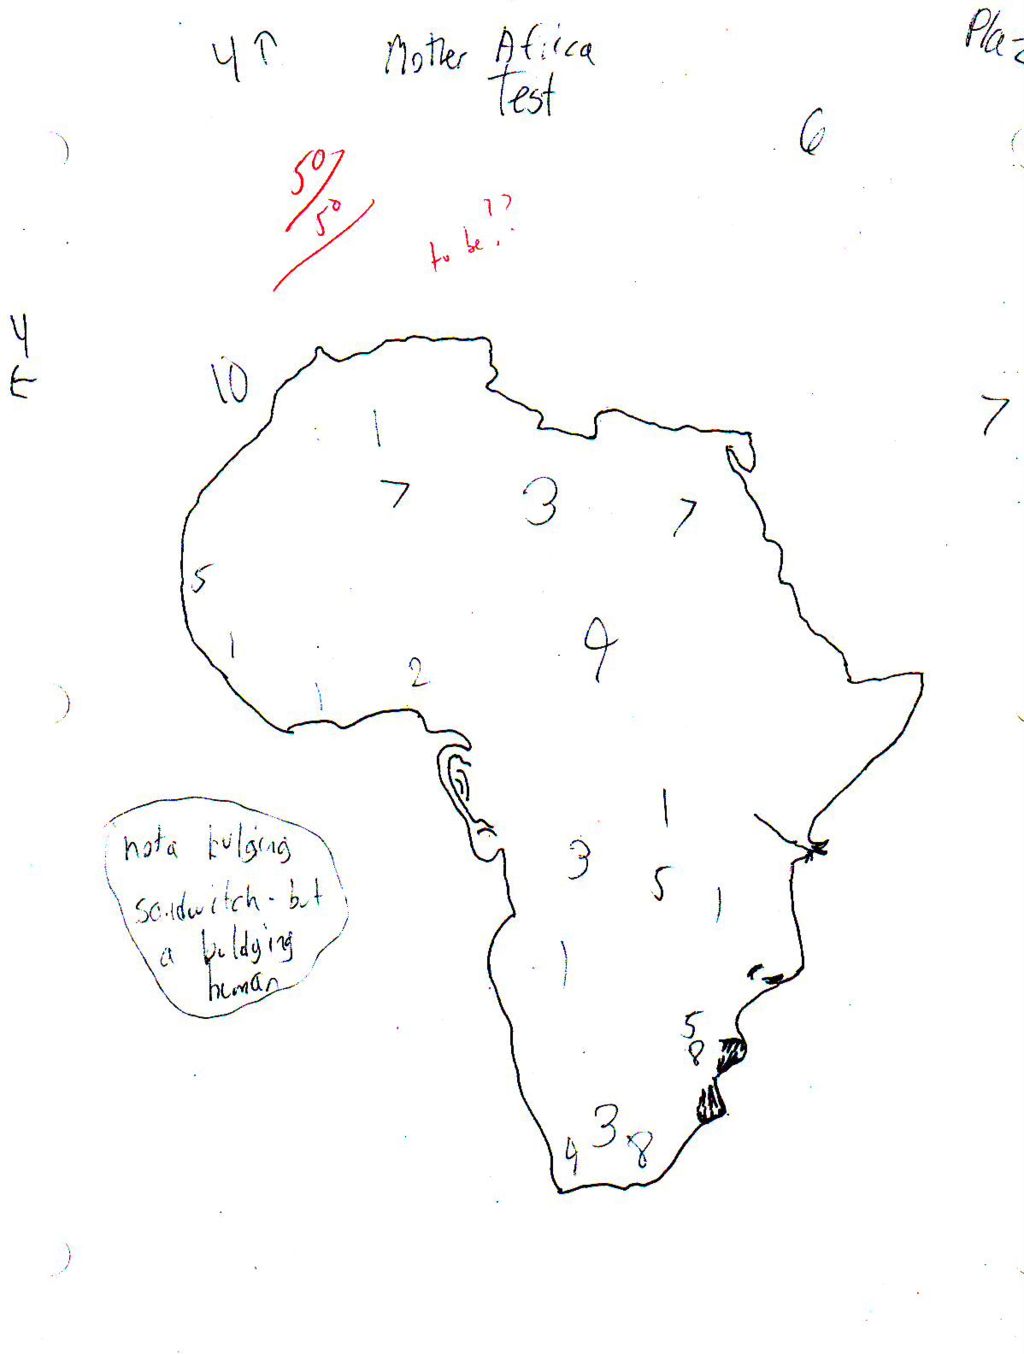 4↑ Mother Africa Plaz
Test
6
50/50
to be??
4
E
10
7
1
7 3 7
5
9
1
1 2
1
3 5 1
1
5
8
3
9 8
not a bulging
sandwitch - but
a buldging
human